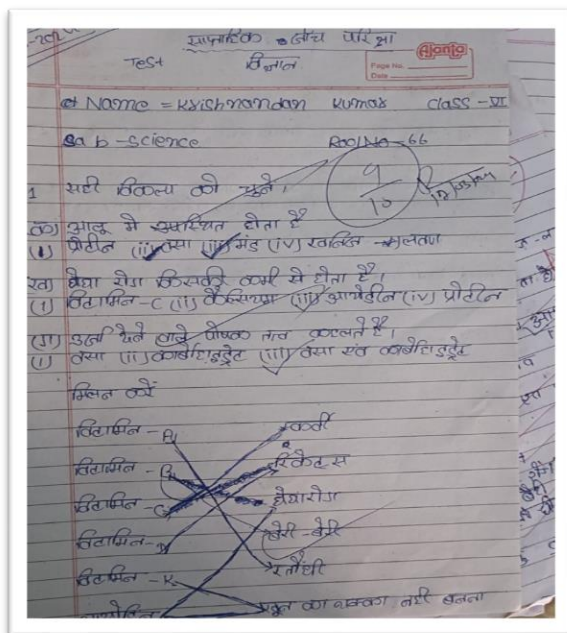 साप्ताहिक जाँच परीक्षा
Test विज्ञान
Ajanta
Page No.
Date
Name = Krishnandan Kumar Class - VI
Sub - Science Roll No - 66
9/10
1 सही विकल्प को चुने।
(क) आलू मे उपस्थित होता है
(i) प्रोटीन (ii) वसा (iii) मंड (iv) खनिज लवण
(ख) घेघा रोग किसकी कमी से होता है।
(i) विटामिन - C (ii) कैल्सियम (iii) आयोडीन (iv) प्रोटीन
(ग) उर्जा देने वाले पोषक तत्व कहलते है।
(i) वसा (ii) कार्बोहाइड्रेट (iii) वसा एंव कार्बोहाइड्रेट
मिलान करें
विटामिन - A स्कर्वी
विटामिन - B रिकेट्स
विटामिन - C घेघारोग
विटामिन - D बेरी - बेरी
विटामिन - K रतौंधी
आयोडिन खून का थक्का नही बनना